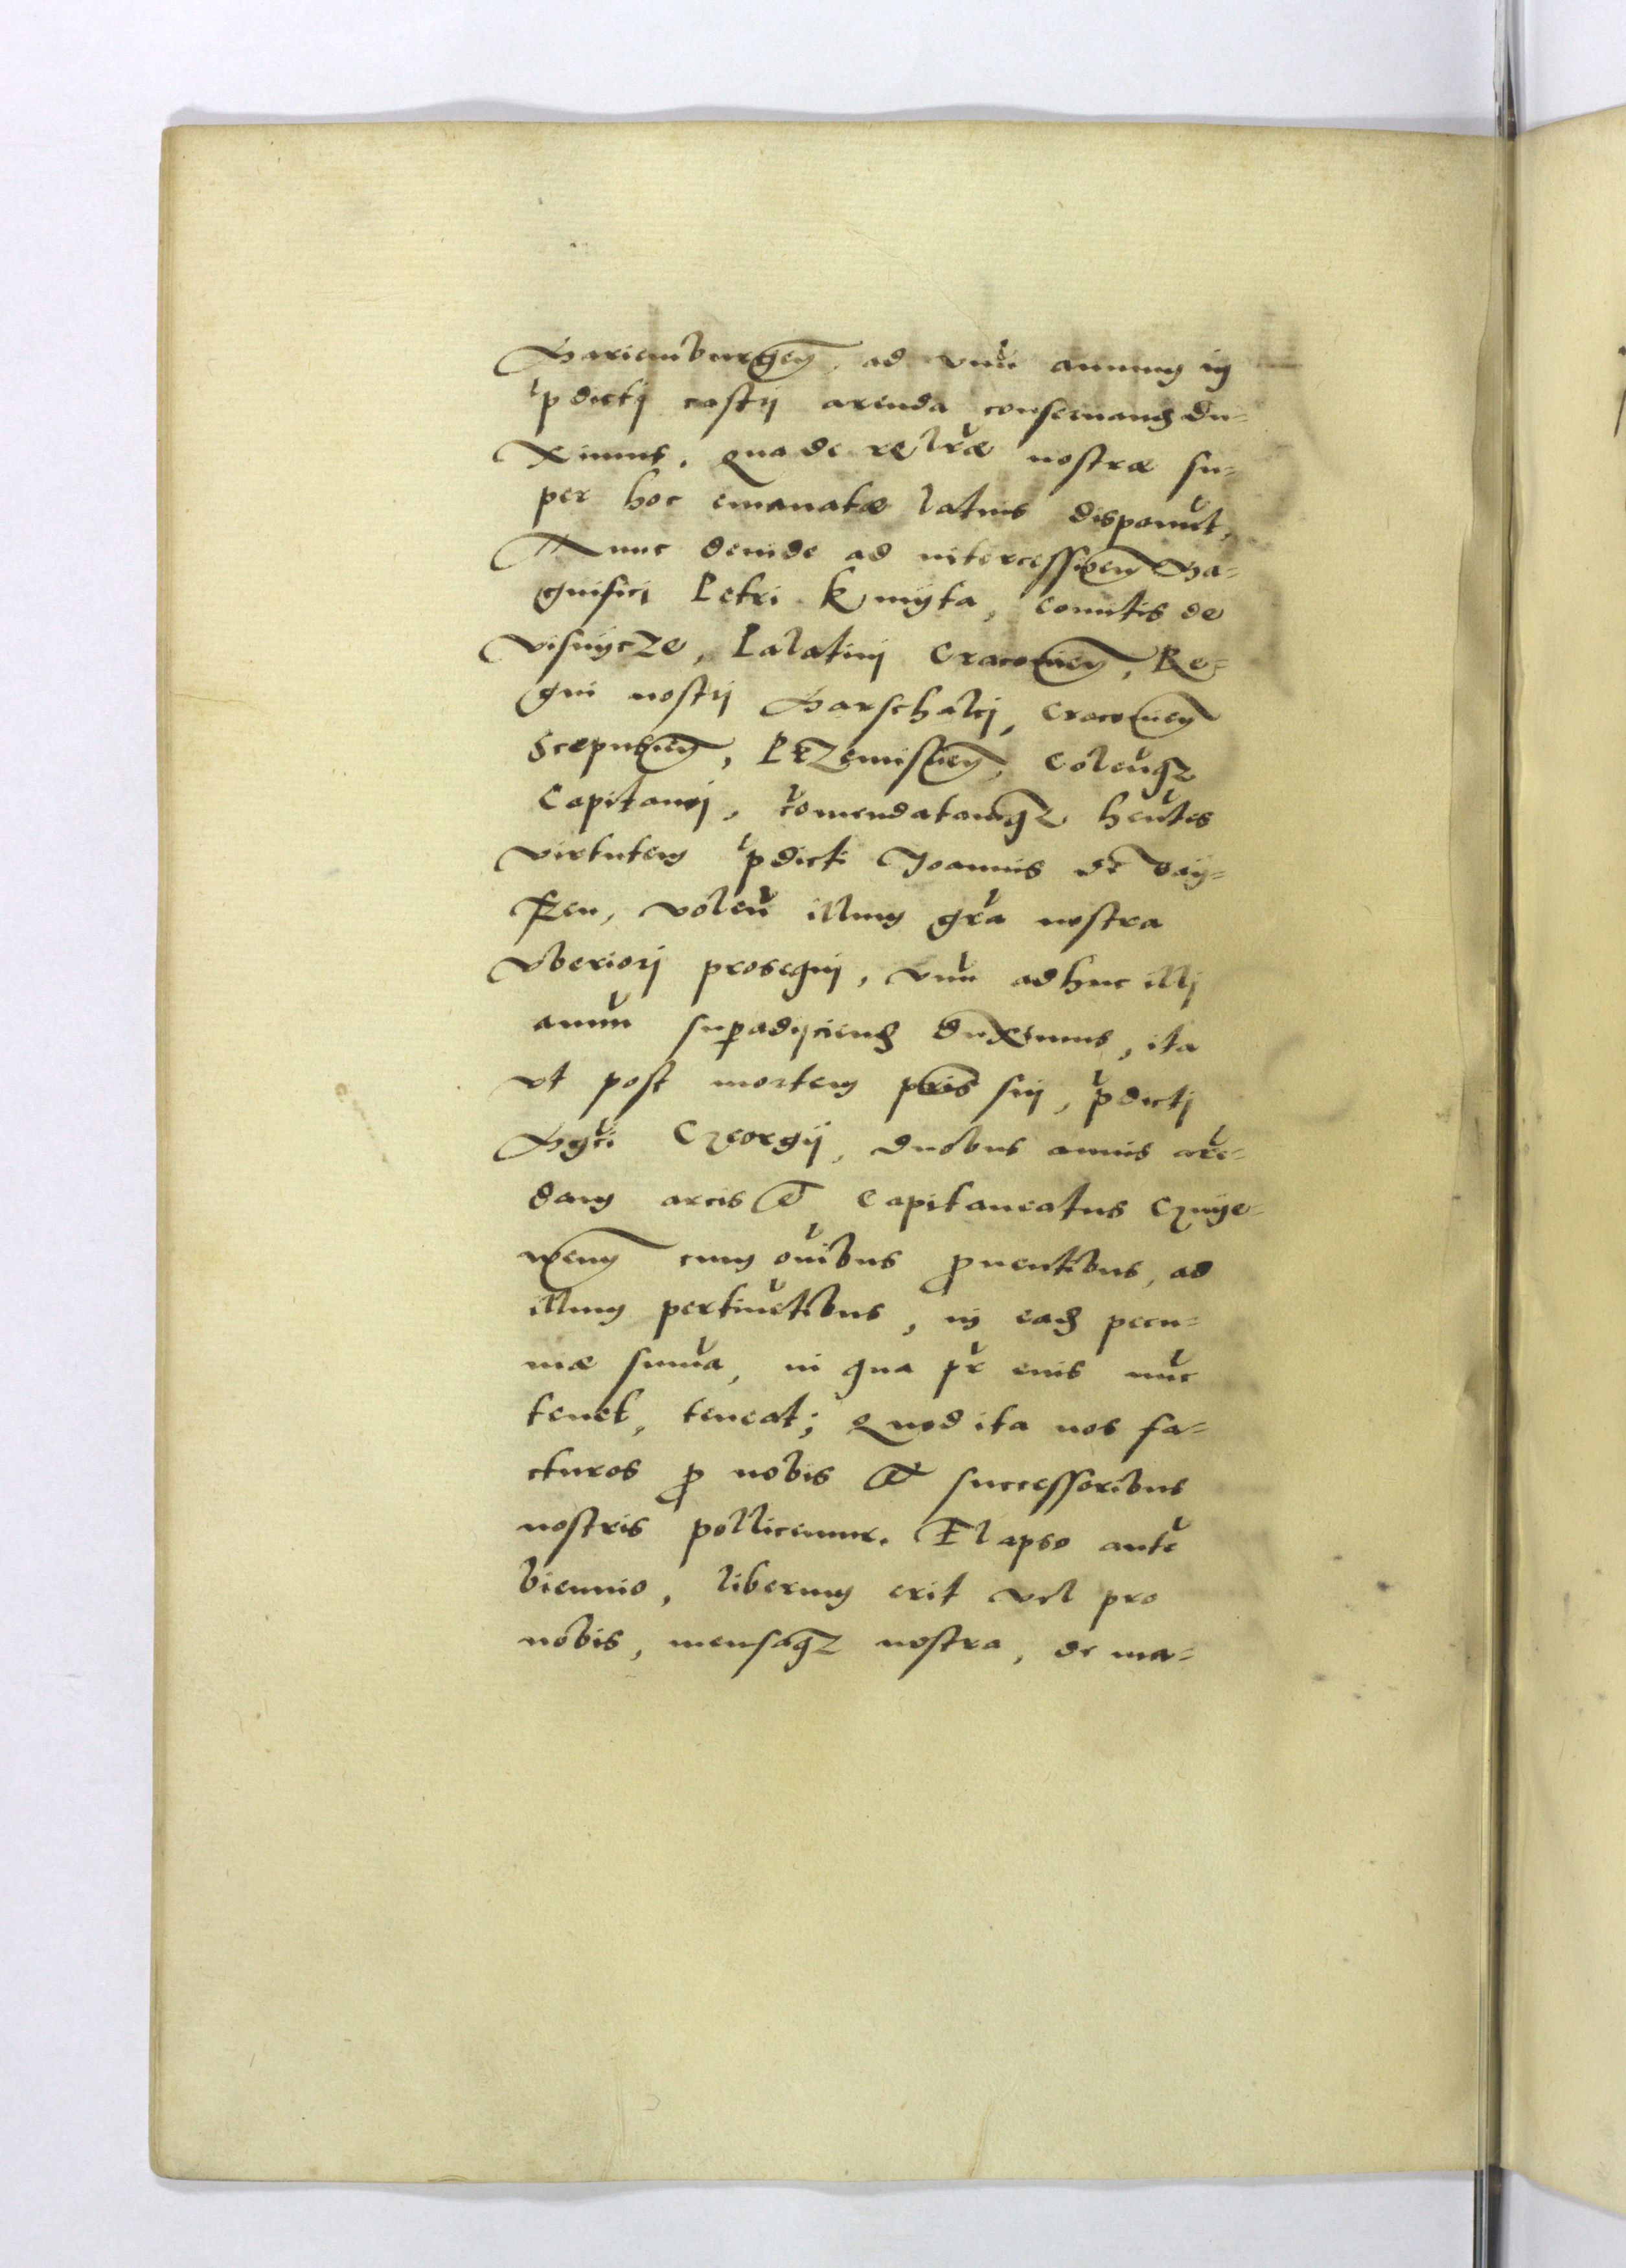 Mariemburgen̄, ad vnū annum in
p̄dicti castri arenda conseruand̄ du-
ximus. Qua de re lr̄æ nostræ su-
per hoc emanatæ latius disponūt,
Nunc deinde ad intercessionem̄ Ma-
gnifici Petri Kmyta, Comitis de
Visnycze, Palatini Cracouien̄, Re-
gni nostri Marschalci, Cracouien̄
Scepusien̄, Przemislien̄, Colen̄q3
Capitanei, Com̄endatamq3 hn̄tes
virtutem p̄dicti Joannis de Bay-
sen, volen̄ illum gr̄a nostra
vberiori prosequi, vnū adhuc illi
annū sup̱adijciend̄ duximus, ita
vt post mortem pr̄is sui, p̄dicti
Mgc̄i Georgij, duobus annis arē-
dam arcis et Capitaneatus Gnye-
wen̄ cum om̄ibus ꝓuentibus, ad
illum pertinētibus, in ead̄ pecu-
niæ sum̄a, in qua pr̄ eius nūc
tenet, teneat; Quod ita nos fa-
cturos ꝓ nobis et successoribus
nostris pollicemur. Elapso autē
biennio, liberum erit vel pro
nobis, mensaq3 nostra, de ma-